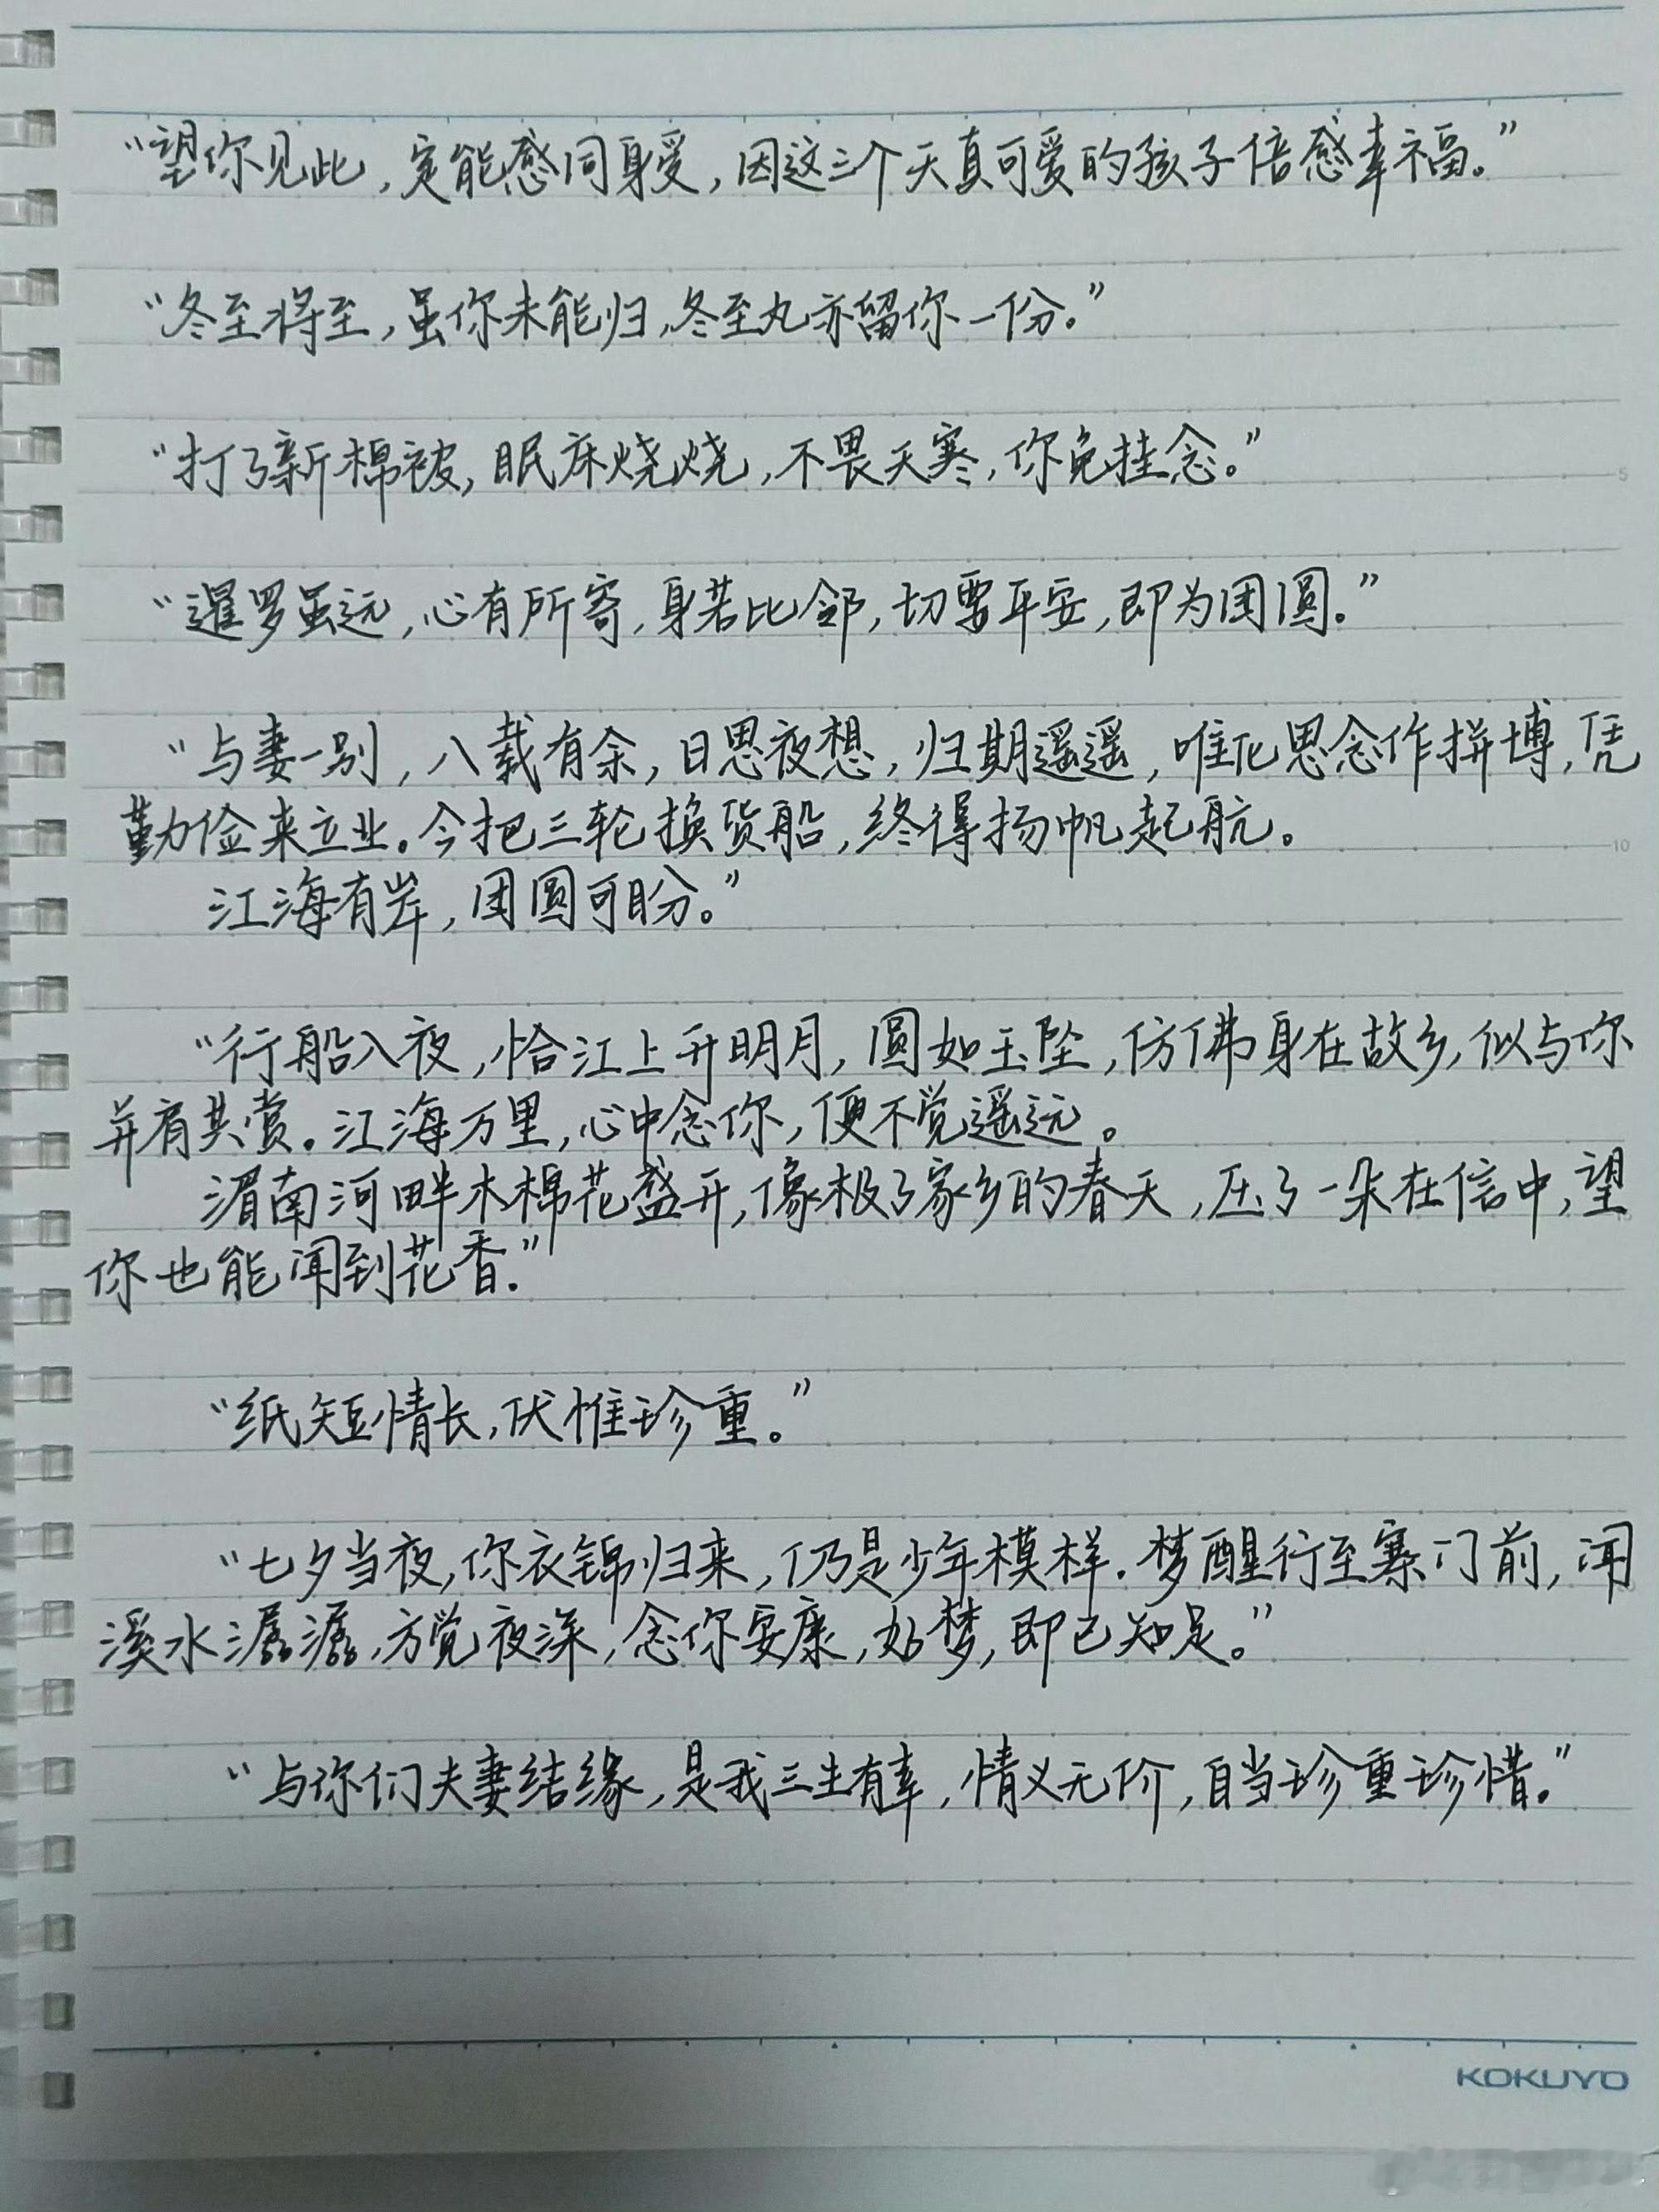 “望你见此，定能感同身受，因这三个天真可爱的孩子倍感幸福。”
“冬至将至，虽你未能归，冬至丸亦留你一份。”
“打了新棉被，眠床烧烧，不畏天寒，你免挂念。”
5
“暹罗虽远，心有所寄，身若比邻，切要平安，即为团圆。”
“与妻一别，八载有余，日思夜想，归期遥遥，唯化思念作拼博，凭
勤俭来立业。今把三轮换货船，终得扬帆起航。
10
江海有岸，团圆可盼。”
“行船入夜，恰江上升明月，圆如玉坠，仿佛身在故乡，似与你
并肩共赏。江海万里，心中念你，便不觉遥远。
湄南河畔木棉花盛开，像极了家乡的春天，压了一朵在信中，望
你也能闻到花香.”
“纸短情长，伏惟珍重。”
“七夕当夜，你衣锦归来，仍是少年模样.梦醒行至寨门前，闻
溪水潺潺，方觉夜深，念你安康，如梦，即已知足。”
“与你们夫妻结缘，是我三生有幸，情义无价，自当珍重珍惜。”
KOKUYO